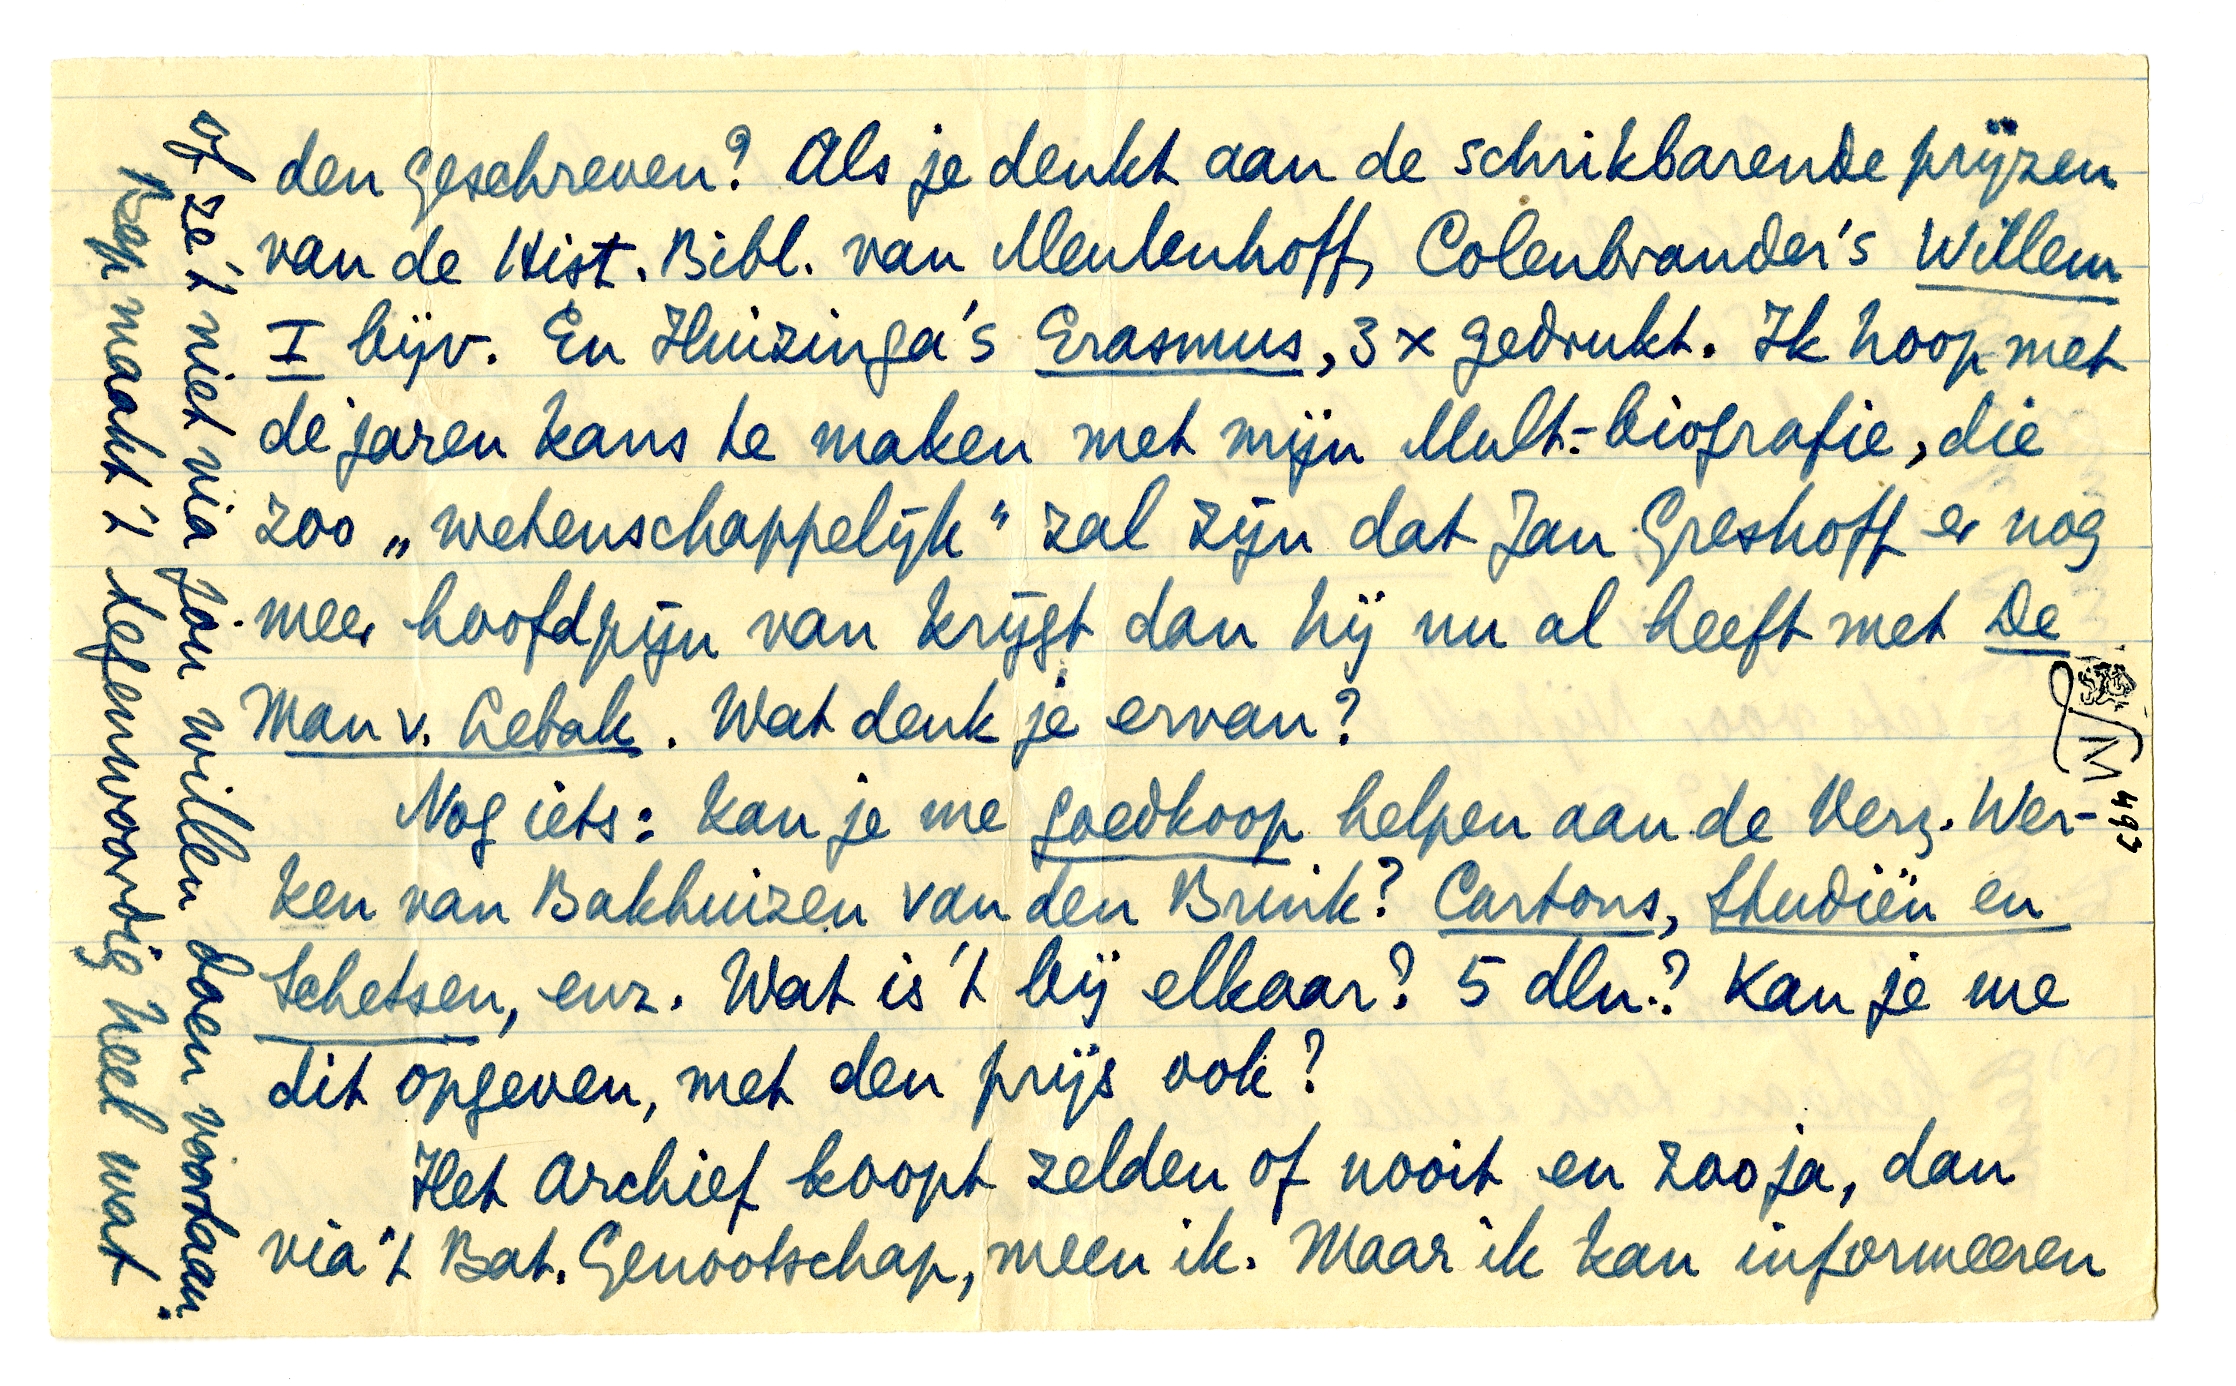 den geschreven? Als je denkt aan de schrikbarende prijzen
van de Hist. Bibl. van Meulenhoff, Colenbrander's Willem
I bijv. En Huizinga's Erasmus, 3 x gedrukt. Ik hoop met
de jaren kans te maken met mijn Mult.-biografie, die
zoo „wetenschappelijk" zal zijn dat Jan Greshoff er nog
meer hoofdpijn van krijgt dan hij nu al heeft met De
Man v. Lebak. Wat denk je ervan?
Nog iets: kan je me goedkoop helpen aan de Verz. Wer-
ken van Bakhuizen van den Brink? Cartons, Studiën en
Schetsen, enz. Wat is 't bij elkaar? 5 dln.? Kan je me
dit opgeven, met den prijs ook?
Het Archief koopt zelden of nooit en zoo ja, dan
via 't Bat. Genootschap, meen ik. Maar ik kan informeeren
of ze 't niet via jou willen doen voortaan.
Bep maakt 't tegenwoordig heel wat
M 493